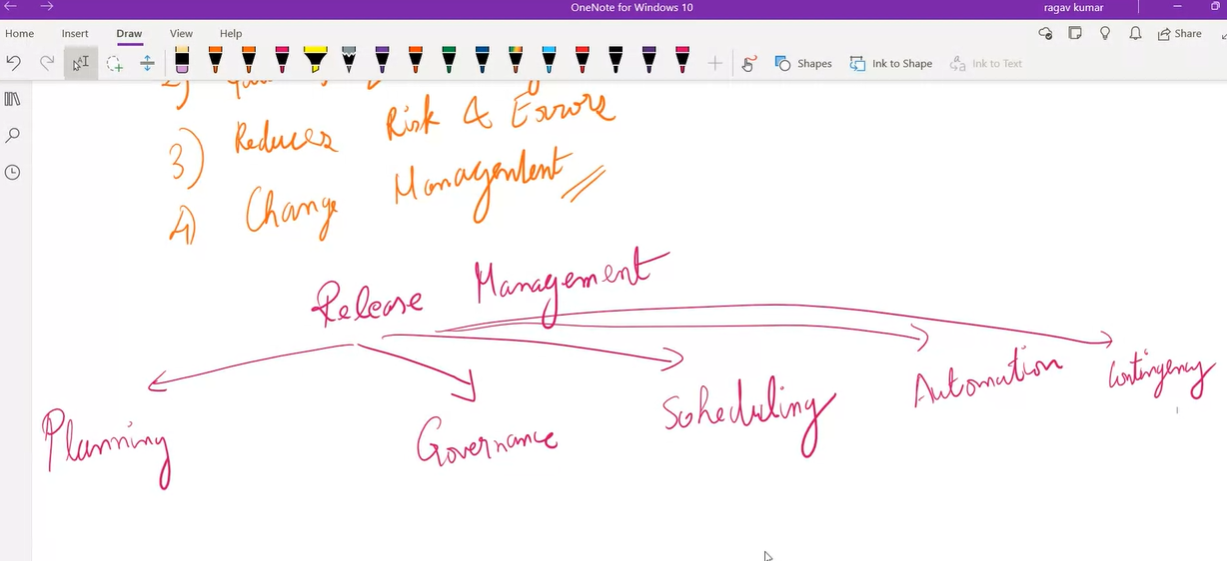 OneNote for Windows 10
ragav kumar
Home Insert Draw View Help
Share
Shapes Ink to Shape Ink to Text
2)
3) Reduces Risk & Errors
4) Change Management
Release Management
Planning Governance Scheduling Automation Contingency